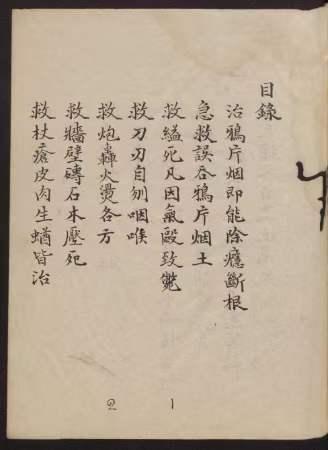 目錄
治鴉片烟即能除癮斷根
急救誤吞鴉片烟土
救縊死凡因氣毆致斃
救刀刃自刎咽喉
救炮轟火燙各方
救牆壁磚石木壓死
救杖瘡皮肉生蛆皆治
1
2